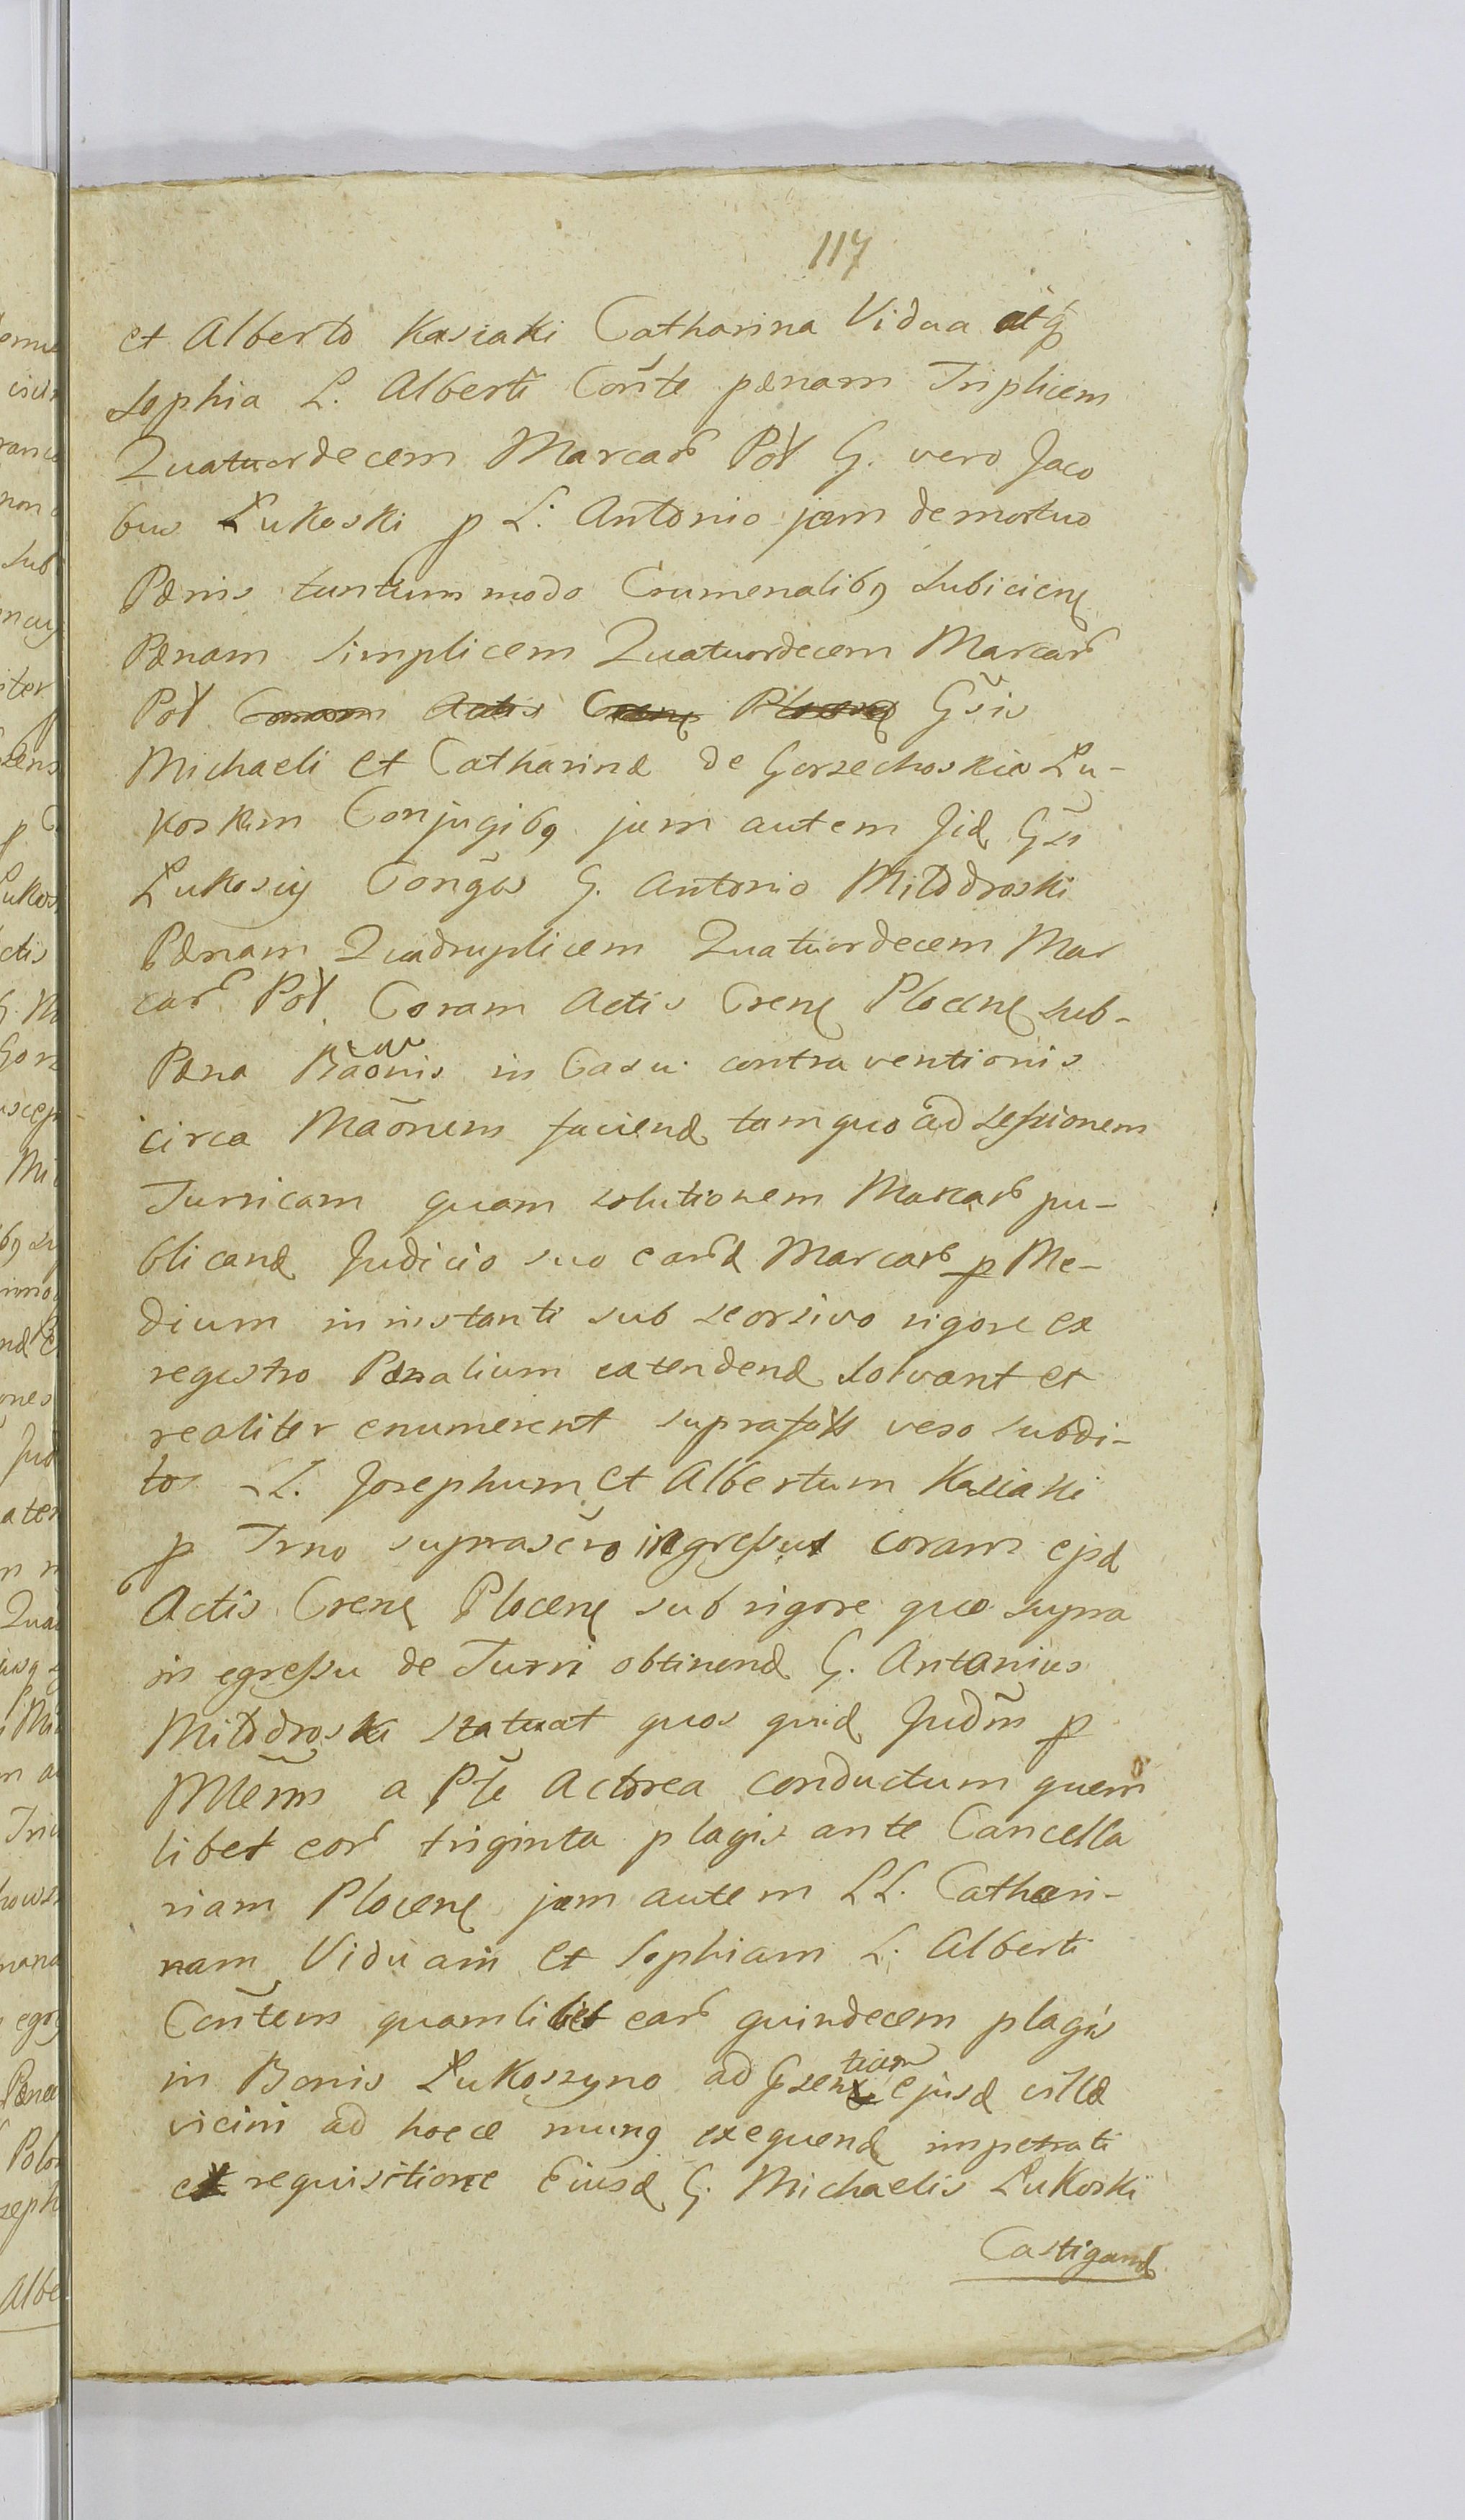 117
et Alberto Kasiaki Catharina Vidua atq
Sophia L. Alberti Con̄te pænam Triplicem
Quatuordecem Marcar Pol G. vero Jaco
bus Łukoski p L. Antonio jam demortuo
Pænis tantum modo Crumenalibq Subiicien
Pænam Simplicem Quatuordecem Marcar
Pol Coram Actis Cren Plocen Gsis
Michaeli et Catharinæ de Gorzechoskie Łu-
koskim Conjugibq jam autem Iid Gsi
Łukoscy Congēs G. Antonio Miłodroski
Pænam Quadruplicem Quatuordecem Mar
car Pol Coram Actis Cren Plocen sub-
Pæna Bāonis in Casu contraventionis
circa Māonem faciend tam quo ad Sessionem
Turricam quam solutionem Marcar pu-
blicand Judicio suo eard Marcar p Me-
dium in instanti sub seorsivo rigore ex
registro Pænalium extendend Solvant et
realiter enumerent suprafatt vero subdi-
tos LL. Josephum et Albertum Kasiaki
p Trno suprascro ingressus coram ejsd
Actis Cren Plocen sub rigore quo supra
in egressu de Turri obtinend G. Antonius
Miłodroski statuat quos quid Judm̄ p
Mlēnm a Pte Actorea conductum quem
libet eor triginta plagis ante Cancella
riam Plocen jam autem LL. Cathari-
nam Viduam et Sophiam L. Alberti
Con̄tem quamlibet ear quindecem plagis
in Bonis Łukoszyno ad
tiam
ejusd villæ
vicini ad hocce munq exequend impetrati
ex requisitione Eiusd G. Michaelis Łukoski
Castigand